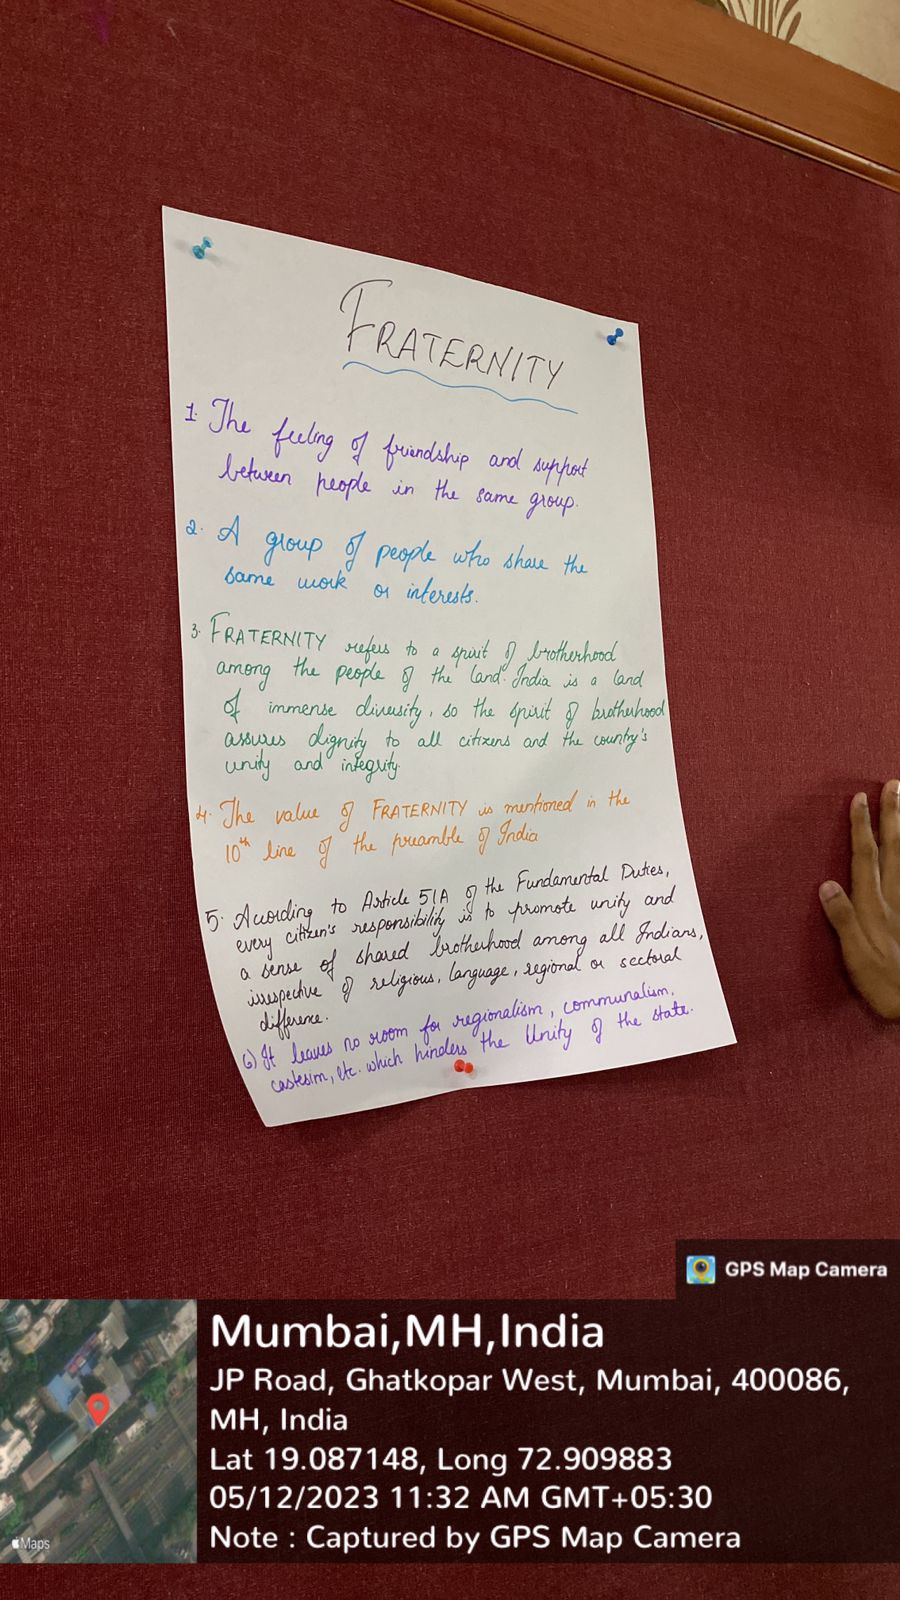 FRATERNITY
1. The feeling of friendship and support
between people in the same group.
2. A group of people who share the
same work or interests.
3. FRATERNITY refers to a spirit of brotherhood
among the people of the land. India is a land
of immense diversity, so the spirit of brotherhood
assures dignity to all citizens and the country's
unity and integrity.
4. The value of FRATERNITY is mentioned in the
10th line of the preamble of India
5. According to Article 51A of the Fundamental Duties,
every citizen's responsibility is to promote unity and
a sense of shared brotherhood among all Indians,
irrespective of religious, language, regional or sectoral
difference.
6) It leaves no room for regionalism, communalism,
castesim, etc. which hinders the Unity of the state.
GPS Map Camera
Mumbai,MH,India
JP Road, Ghatkopar West, Mumbai, 400086,
MH, India
Lat 19.087148, Long 72.909883
05/12/2023 11:32 AM GMT+05:30
Note : Captured by GPS Map Camera
Maps